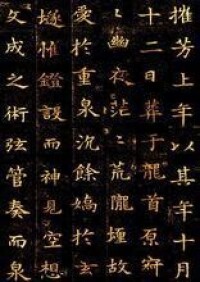 摧芳上年以其年十月
十二日葬于龍首原
〻幽夜茫〻荒隴堙故
愛於重泉沉餘嬌於玄
燧惟鐙設而神見空想
文成之術弦管奏而泉